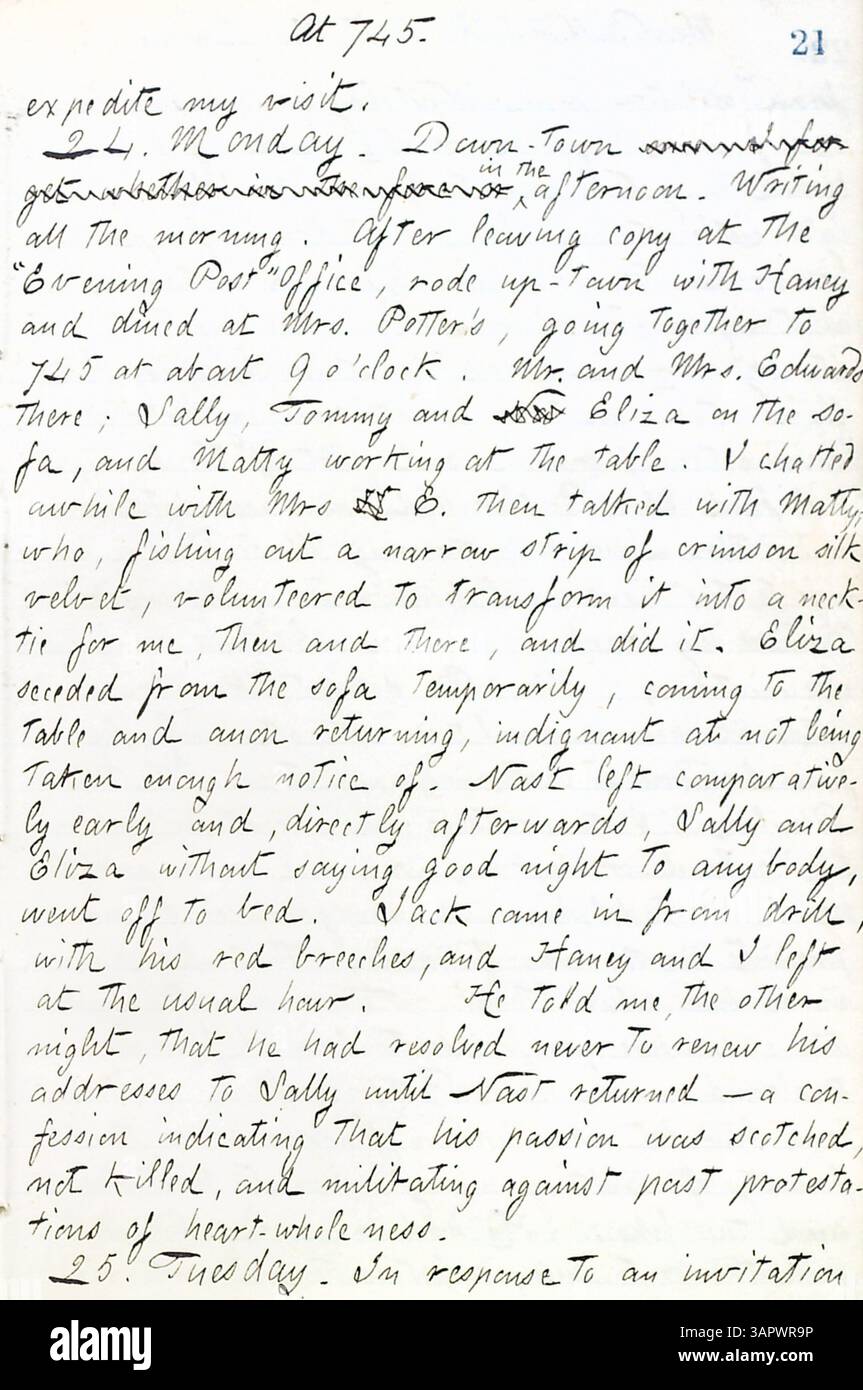 At 745.
21
expedite my visit.
24. Monday. Down-Town
in the
get whether in the fore or afternoon. Writing
all the morning. After leaving copy at the
"Evening Post" Office, rode up-town with Haney
and dined at Mrs. Potter's, going together to
745 at about 9 o'clock. Mr. and Mrs. Edwards
there; Sally, Tommy and Eliza on the so-
fa, and Matty working at the table. I chatted
awhile with Mrs E. then talked with Matty,
who, fishing out a narrow strip of crimson silk
velvet, volunteered to transform it into a neck-
tie for me, then and there, and did it. Eliza
seceded from the sofa temporarily, coming to the
table and anon returning, indignant at not being
taken enough notice of. Nast left comparative-
ly early and, directly afterwards, Sally and
Eliza without saying good night to anybody,
went off to bed. Jack came in from drill,
with his red breeches, and Haney and I left
at the usual hour. He told me, the other
night, that he had resolved never to renew his
addresses to Sally until Nast returned — a con-
fession indicating that his passion was scotched,
not killed, and militating against past protesta-
tions of heart-wholeness.
25. Tuesday. In response to an invitation
alamy
Image ID: 3APWR9P
www.alamy.com